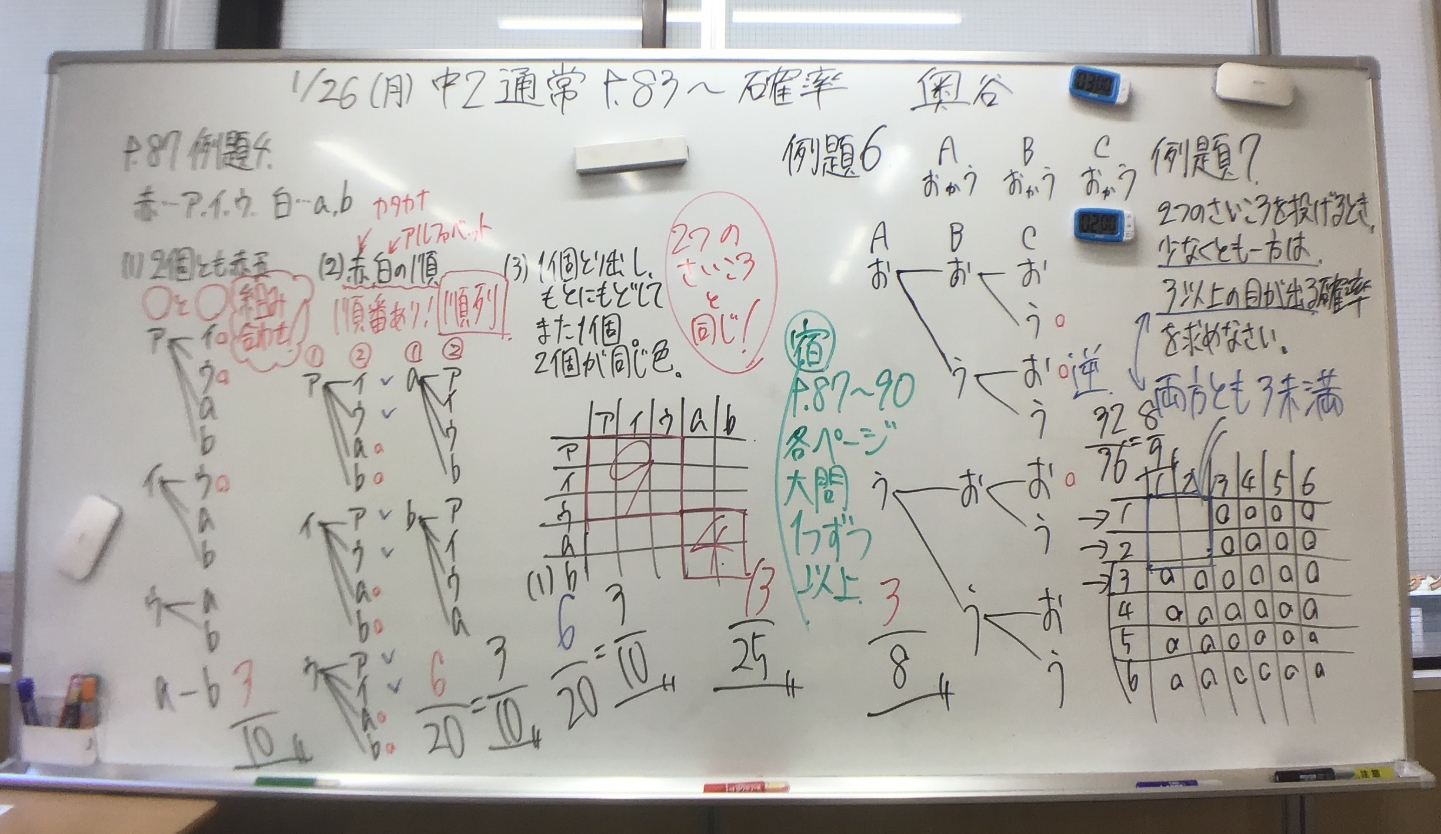 1/26(月) 中2 通常 P.83〜 確率 奥谷
P.87 例題4.
赤…ア.イ.ウ. 白…a,b
カタカナ
アルファベット
(1) 2個とも赤玉
○と○ 組み
合わせ!
ア イ○
ウ○
a
b
イ ウ○
a
b
ウ a
b
a-b
3/10
(2) 赤,白の順
順番あり! 順列
① ② ① ②
ア イ✓
ウ✓
a○
b○
イ ア✓
ウ✓
a○
b○
ウ ア✓
イ✓
a○
b○
a ア
イ
ウ
b
b ア
イ
ウ
a
6/20=3/10
(3) 1個とり出し、
もとにもどして
また1個。
2個が同じ色。
2つの
さいころ
と
同じ!
ア イ ウ a b
ア
イ
ウ
a
b
9
4
(1) 6/20=3/10
13/25
宿
P.87〜90
各ページ
大問
1つずつ
以上
例題6 A B C
おかう おかう おかう
A B C
お お お
う○
う お○逆
う
う お お○
う
う お
う
3/8
例題7
2つのさいころを投げるとき,
少なくとも一方は,
3以上の目が出る確率
を求めなさい。
両方とも3未満
32/36=8/9
1 2 3 4 5 6
→1 ○ ○ ○ ○
→2 ○ ○ ○ ○
→3 ○ ○ ○ ○ ○ ○
4 ○ ○ ○ ○ ○ ○
5 ○ ○ ○ ○ ○ ○
6 ○ ○ ○ ○ ○ ○